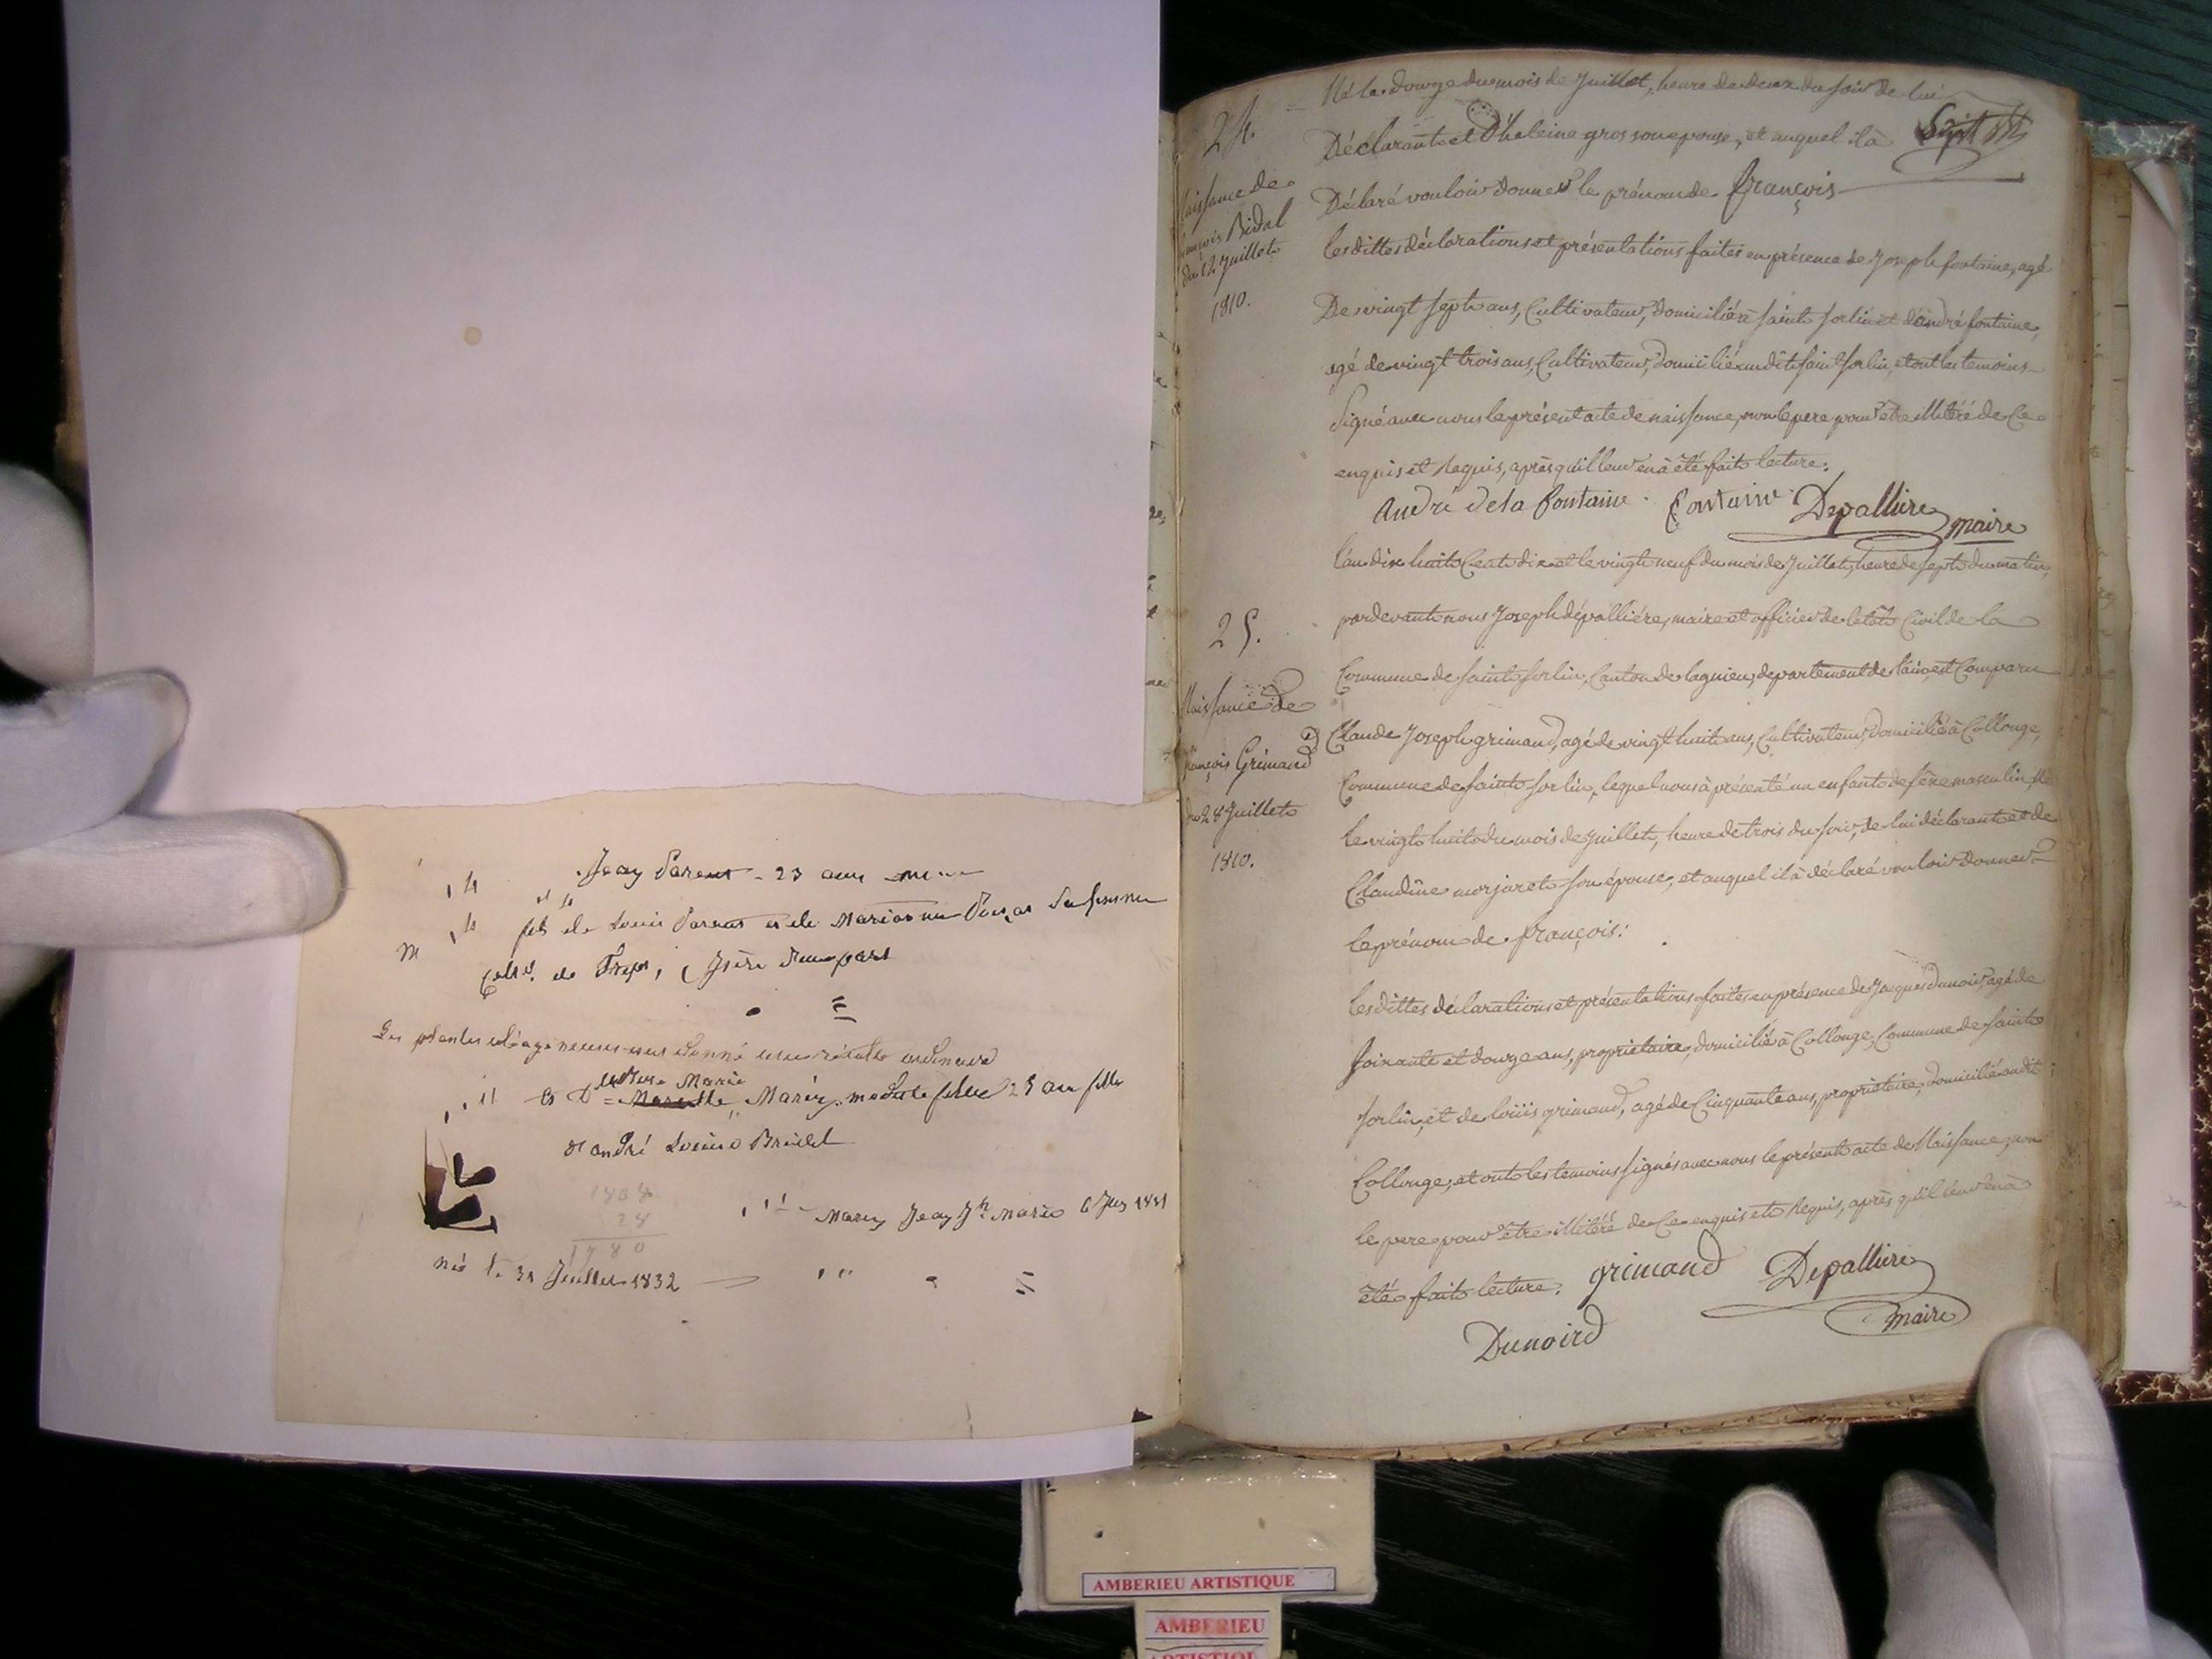 Jean Parent - 23 ans
fils de Louis Parent et de Marianne sa femme
Cult. de Trept, Isère d'une part
=
Les plantes oléagineuses ont donné une récolte ordinaire
Marie
Et D. = Marie modiste fille 25 ans fille
d'andré Louis Bridel
1808
28
1780
Marie Jean Jh. Marie 6 1831
né le 31 Juillet 1832
24.
Naissance de
françois Bidal
du 12 Juillet
1810.
Né le douze du mois de Juillet, heure de deux du soir de lui
Déclarant et D'heleine gros son epouse, et auquel il à
Sept
Déclaré vouloir donner le prénom de françois
lesdittes déclarations et présentations faites en présence de Joseph fontaine, agé
De vingt sept ans, Cultivateur, domicilié à saint sorlin et d'andré fontaine,
agé de vingt trois ans, Cultivateur, domicilié au dit saint sorlin, et ont les temoins
Signé avec nous le présent acte de naissance, non le pere pour être illitéré de Ce
enquis et Requis, après qu'il leur en à été fait lecture.
André dela fontaine . fontaine Depalliere maire
25.
Naissance de
françois Grimand
du 28 Juillet
1810.
l'an dix huit Cent dix et le vingt neuf du mois de Juillet, heure de sept du matin,
pardevant nous Joseph dépalliére, maire et officier de letat Civil de la
Commune de saint sorlin, Canton de lagnieu, departement de l'ain est Comparu
Claude Joseph grimand, agé de vingt huit ans, Cultivateur, domicilié à Collonge,
Commune de saint sorlin, lequel nous à présenté un enfant de sexe masculin, né
le vingt huit du mois de Juillet, heure de trois du soir, de lui déclarant et de
Claudine morjaret son épouse, et auquel il à déclaré vouloir donner
le prénom de françois:
lesdittes déclarations et présentations faites en présence de Jacques dunoir, agé de
soixante et douze ans, proprietaire, domicilié à Collonge, Commune de saint
sorlin, et de loüis grimand, agé de Cinquante ans, proprietaire, domicilié audit
Collonge, et ont les temoins signés avec nous le présent acte de Naissance, non
le pere pour être illitéré de Ce enquis et Requis, après qu'il leur en à
été fait lecture. grimand Depalliere
maire
Dunoird
AMBERIEU ARTISTIQUE
AMBERIEU
ARTISTIQUE